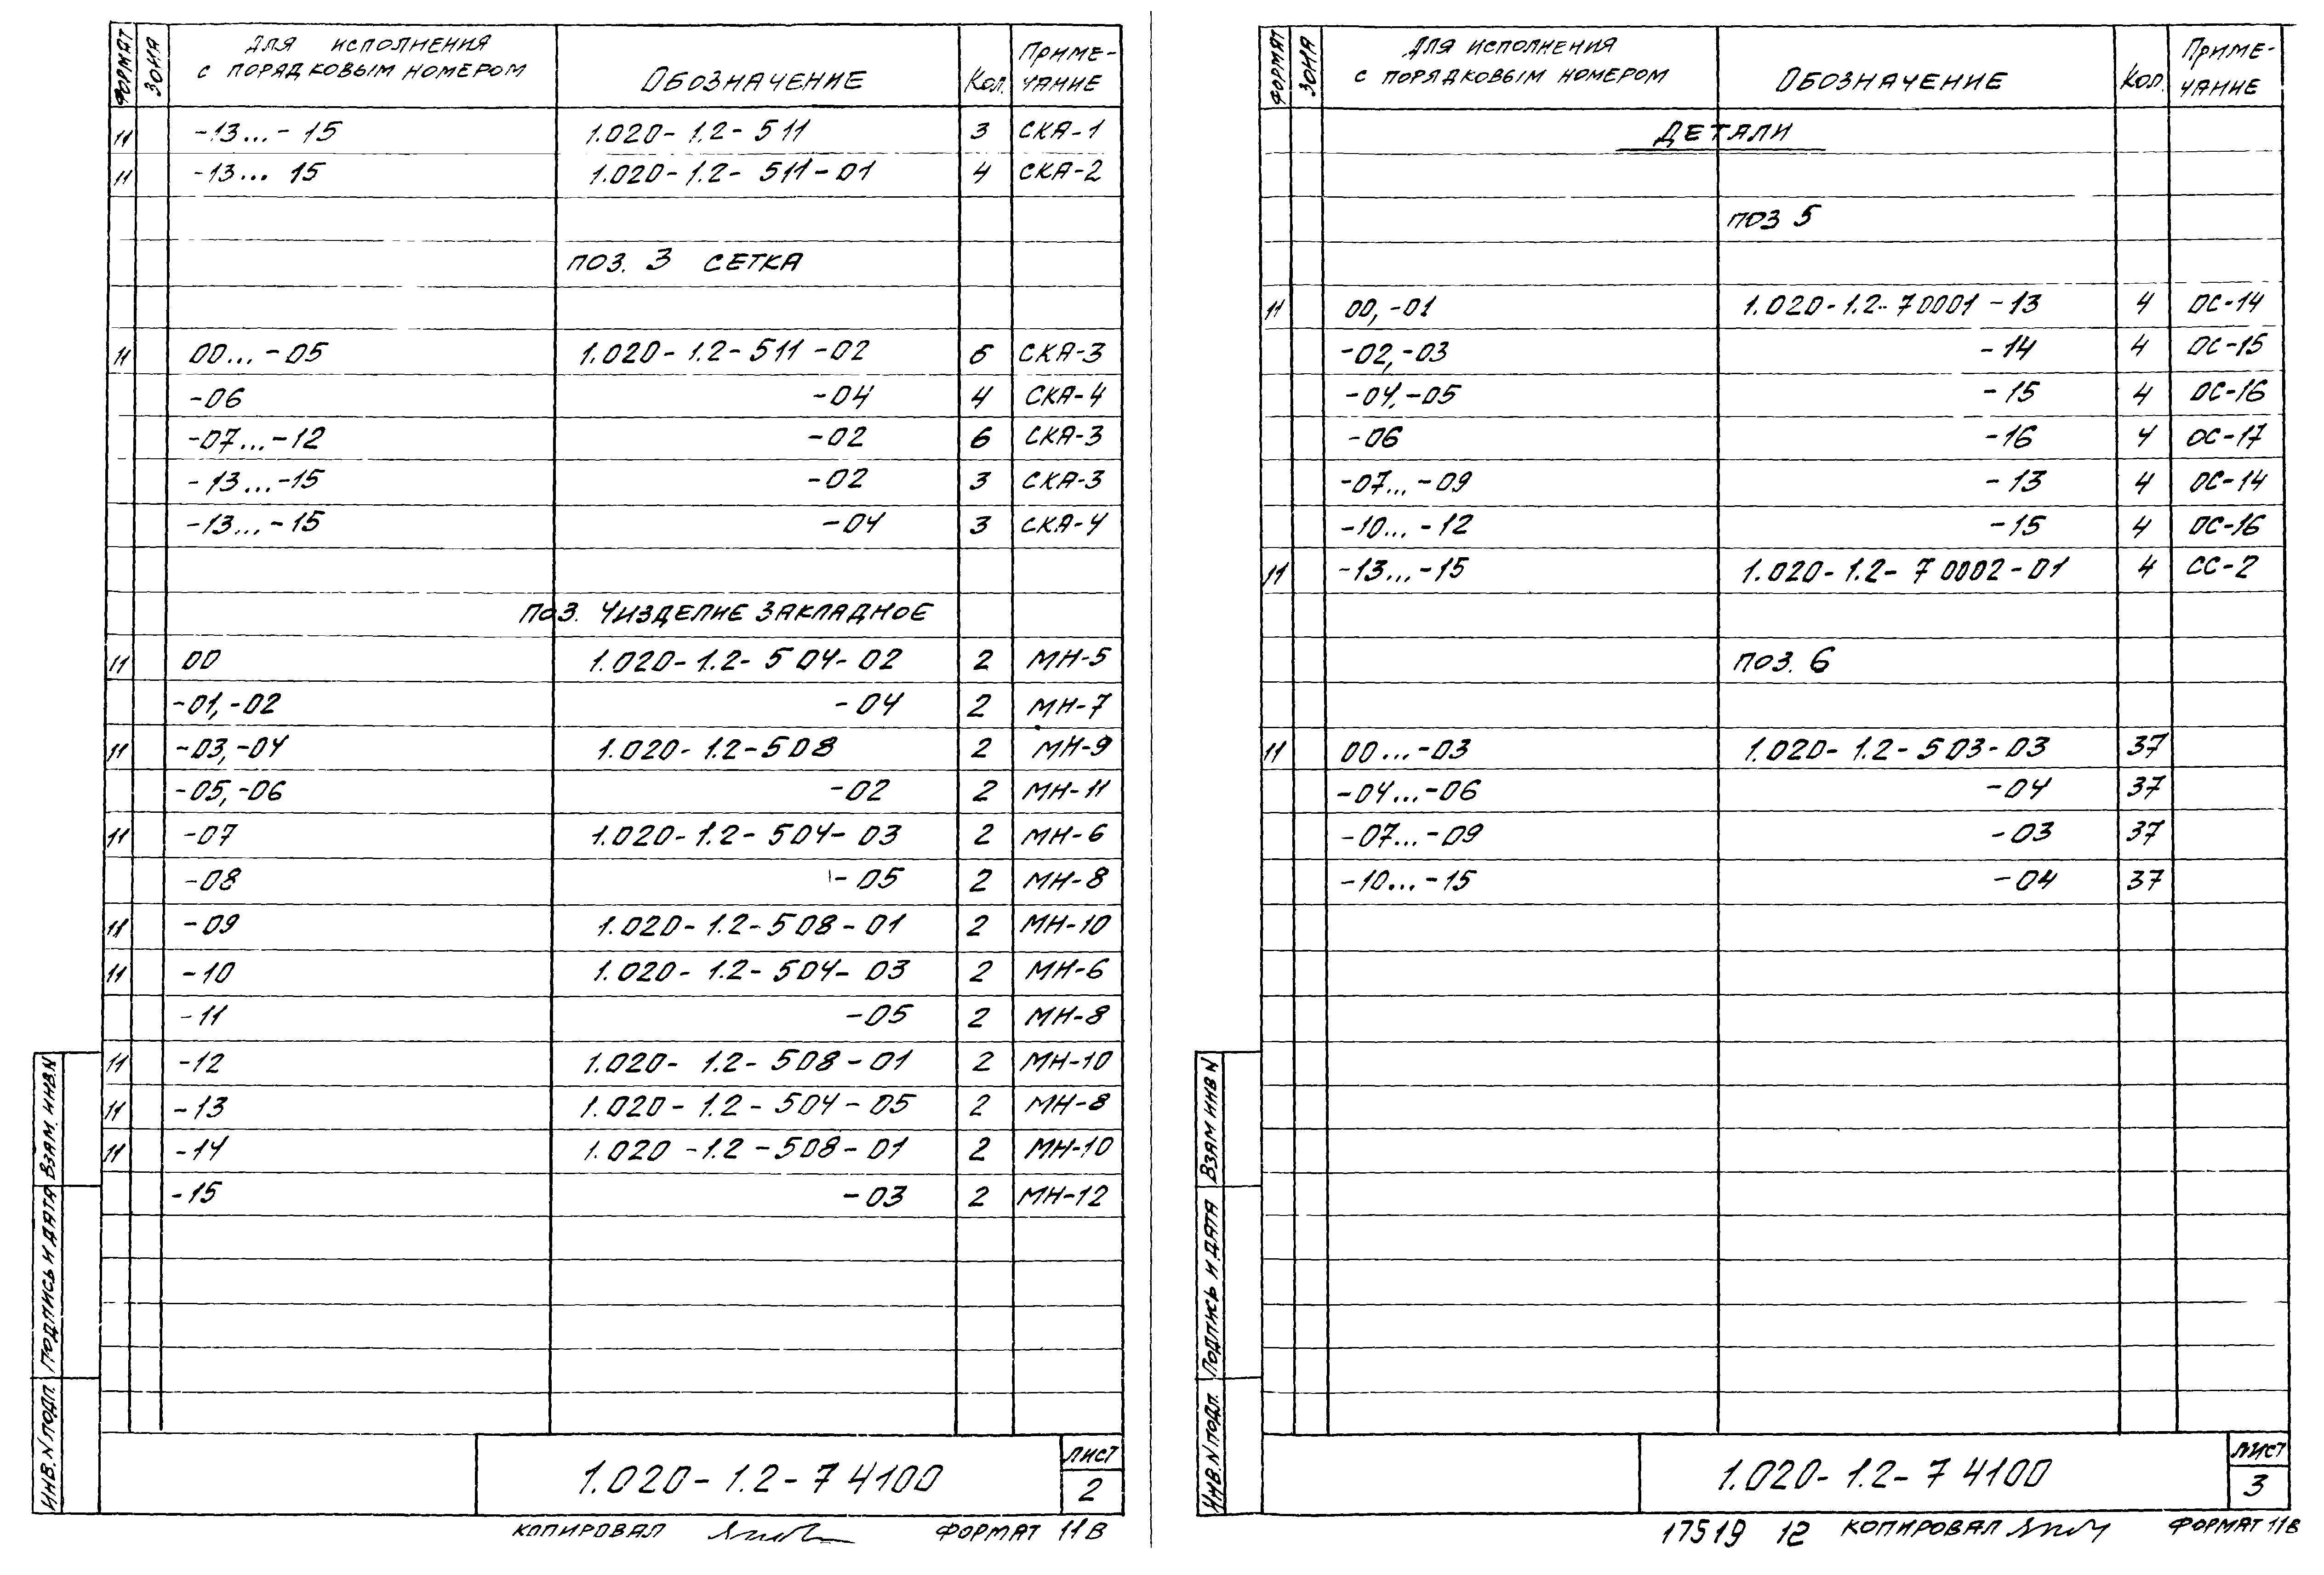 ФОРМАТ ЗОНА Для исполнения с порядковым номером Обозначение Кол. Примечание
11 -13...-15 1.020-1.2-511 3 СКА-1
11 -13... 15 1.020-1.2-511-01 4 СКА-2
поз. 3 СЕТКА
11 00...-05 1.020-1.2-511-02 6 СКА-3
-06 -04 4 СКА-4
-07...-12 -02 6 СКА-3
-13...-15 -02 3 СКА-3
-13...-15 -04 3 СКА-4
поз. 4 изделие закладное
11 00 1.020-1.2-504-02 2 МН-5
-01,-02 -04 2 МН-7
11 -03,-04 1.020-1.2-508 2 МН-9
-05,-06 -02 2 МН-11
11 -07 1.020-1.2-504-03 2 МН-6
-08 -05 2 МН-8
11 -09 1.020-1.2-508-01 2 МН-10
11 -10 1.020-1.2-504-03 2 МН-6
-11 -05 2 МН-8
11 -12 1.020-1.2-508-01 2 МН-10
11 -13 1.020-1.2-504-05 2 МН-8
11 -14 1.020-1.2-508-01 2 МН-10
-15 -03 2 МН-12
Инв. N подл. Подпись и дата Взам. инв. N
1.020-1.2-74100 Лист 2
Копировал Формат 11В
ФОРМАТ ЗОНА Для исполнения с порядковым номером Обозначение Кол. Примечание
Детали
поз 5
11 00,-01 1.020-1.2-70001-13 4 ОС-14
-02,-03 -14 4 ОС-15
-04,-05 -15 4 ОС-16
-06 -16 4 ОС-17
-07...-09 -13 4 ОС-14
-10...-12 -15 4 ОС-16
11 -13...-15 1.020-1.2-70002-01 4 СС-2
поз. 6
11 00...-03 1.020-1.2-503-03 37
-04...-06 -04 37
-07...-09 -03 37
-10...-15 -04 37
Инв. N подл. Подпись и дата Взам инв N
1.020-1.2-74100 Лист 3
17519 12 Копировал Формат 11В